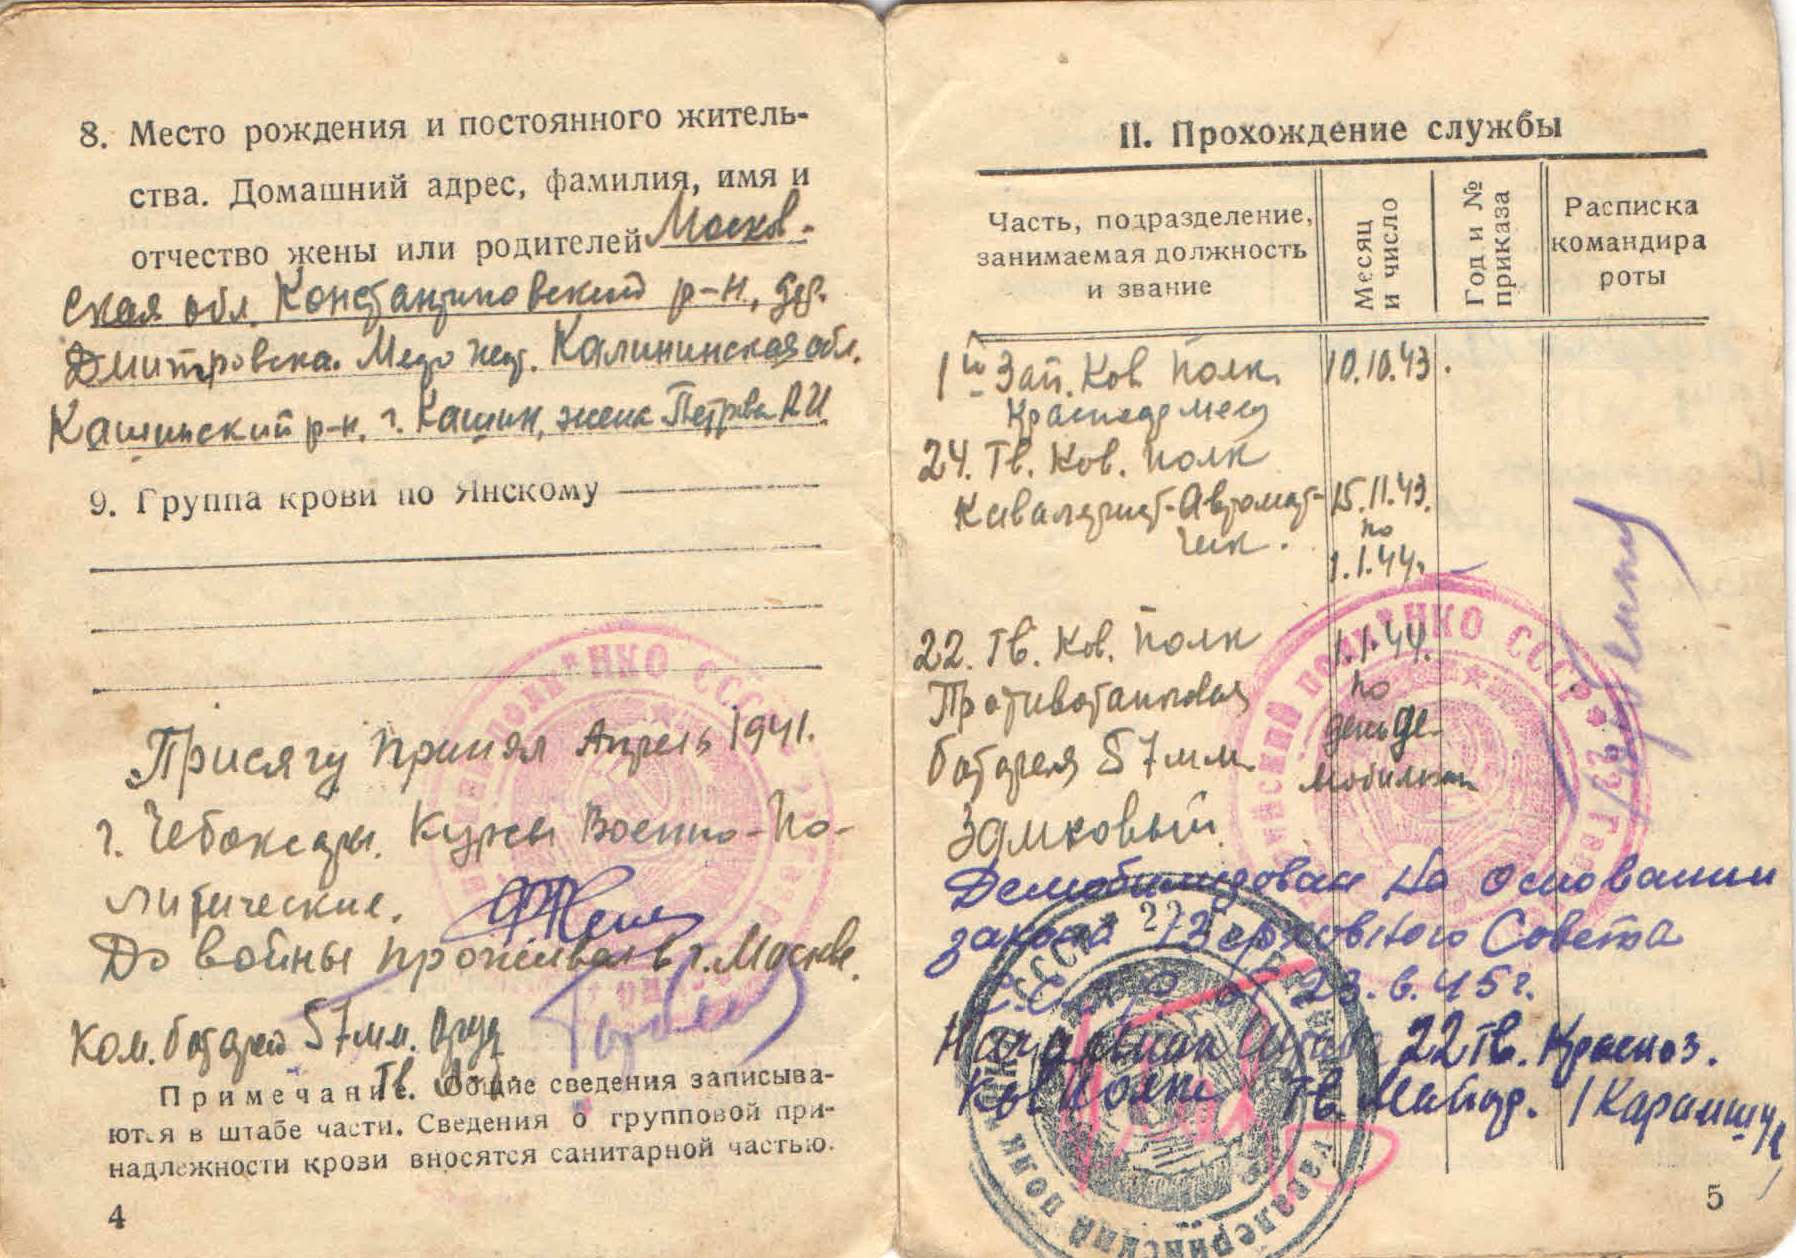 8. Место рождения и постоянного житель-
ства. Домашний адрес, фамилия, имя и
отчество жены или родителей Москов-
ская обл. Константиновский р-н, дер.
Дмитровска. Калининская обл.
Кашинский р-н. г. Кашин, жена Петрова А И.
9. Группа крови по Янскому
Присягу принял Апрель 1941.
г. Чебоксары. Курсы Военно-По-
литические.
До войны проживал в г. Москве.
Ком. батареи 57 мм.
Гв.
Примечание. Общие сведения записыва-
ются в штабе части. Сведения о групповой при-
надлежности крови вносятся санитарной частью.
4
II. Прохождение службы
Часть, подразделение,
занимаемая должность
и звание
Месяц
и число
Год и №
приказа
Расписка
командира
роты
1й Зап. Кав полк. 10.10.43.
Красноармеец
24. Гв. Кав. полк
Кавалерист-Автомат- 15.11.43.
чик. по
1.1.44.
22. Гв. Кав. Полк 1.1.44.
Противотанковая по
батарея 57 мм. день де-
мобилизац
Замковый.
Демобилизован на основании
закона Верховного Совета
С.С.С.Р. от 23.6.45г.
Начальник Штаба 22 Гв. Красноз.
Кав Полка Гв. Майор. /Карамшук
5